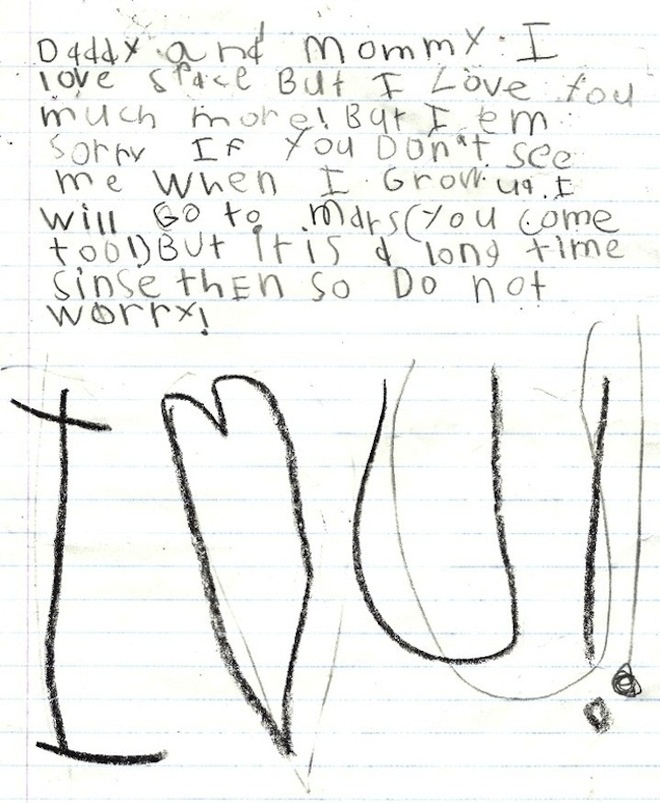 Daddy and Mommy. I
love space But I Love you
much more! But I em
Sorry If You Don't see
me When I Grow up. I
Will Go to Mars (you come
too!) But It is a long time
sinse then so Do not
worry!
I ♥ U!